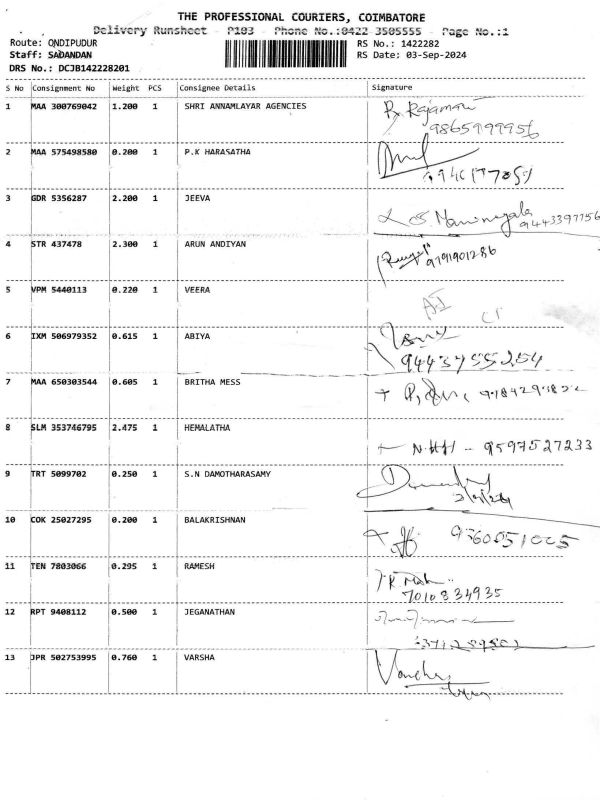 THE PROFESSIONAL COURIERS, COIMBATORE
Delivery Runsheet - P103 - Phone No.:0422 3505555 - Page No.:1
Route: ONDIPUDUR RS No.: 1422282
Staff: SADANDAN RS Date: 03-Sep-2024
DRS No.: DCJB142228201
S No Consignment No Weight PCS Consignee Details Signature
1 MAA 300769042 1.200 1 SHRI ANNAMLAYAR AGENCIES Rajamani
9865999956
2 MAA 575498580 0.200 1 P.K HARASATHA
3 GDR 5356287 2.200 1 JEEVA
9443397756
4 STR 437478 2.300 1 ARUN ANDIYAN
9791901286
5 VPM 5440113 0.220 1 VEERA
6 IXM 506979352 0.615 1 ABIYA
9443755254
7 MAA 650303544 0.605 1 BRITHA MESS
8 SLM 353746795 2.475 1 HEMALATHA
9597527233
9 TRT 5099702 0.250 1 S.N DAMOTHARASAMY
10 COK 25027295 0.200 1 BALAKRISHNAN 9360051005
11 TEN 7803066 0.295 1 RAMESH
7010834935
12 RPT 9408112 0.500 1 JEGANATHAN
13 JPR 502753995 0.760 1 VARSHA Varsha